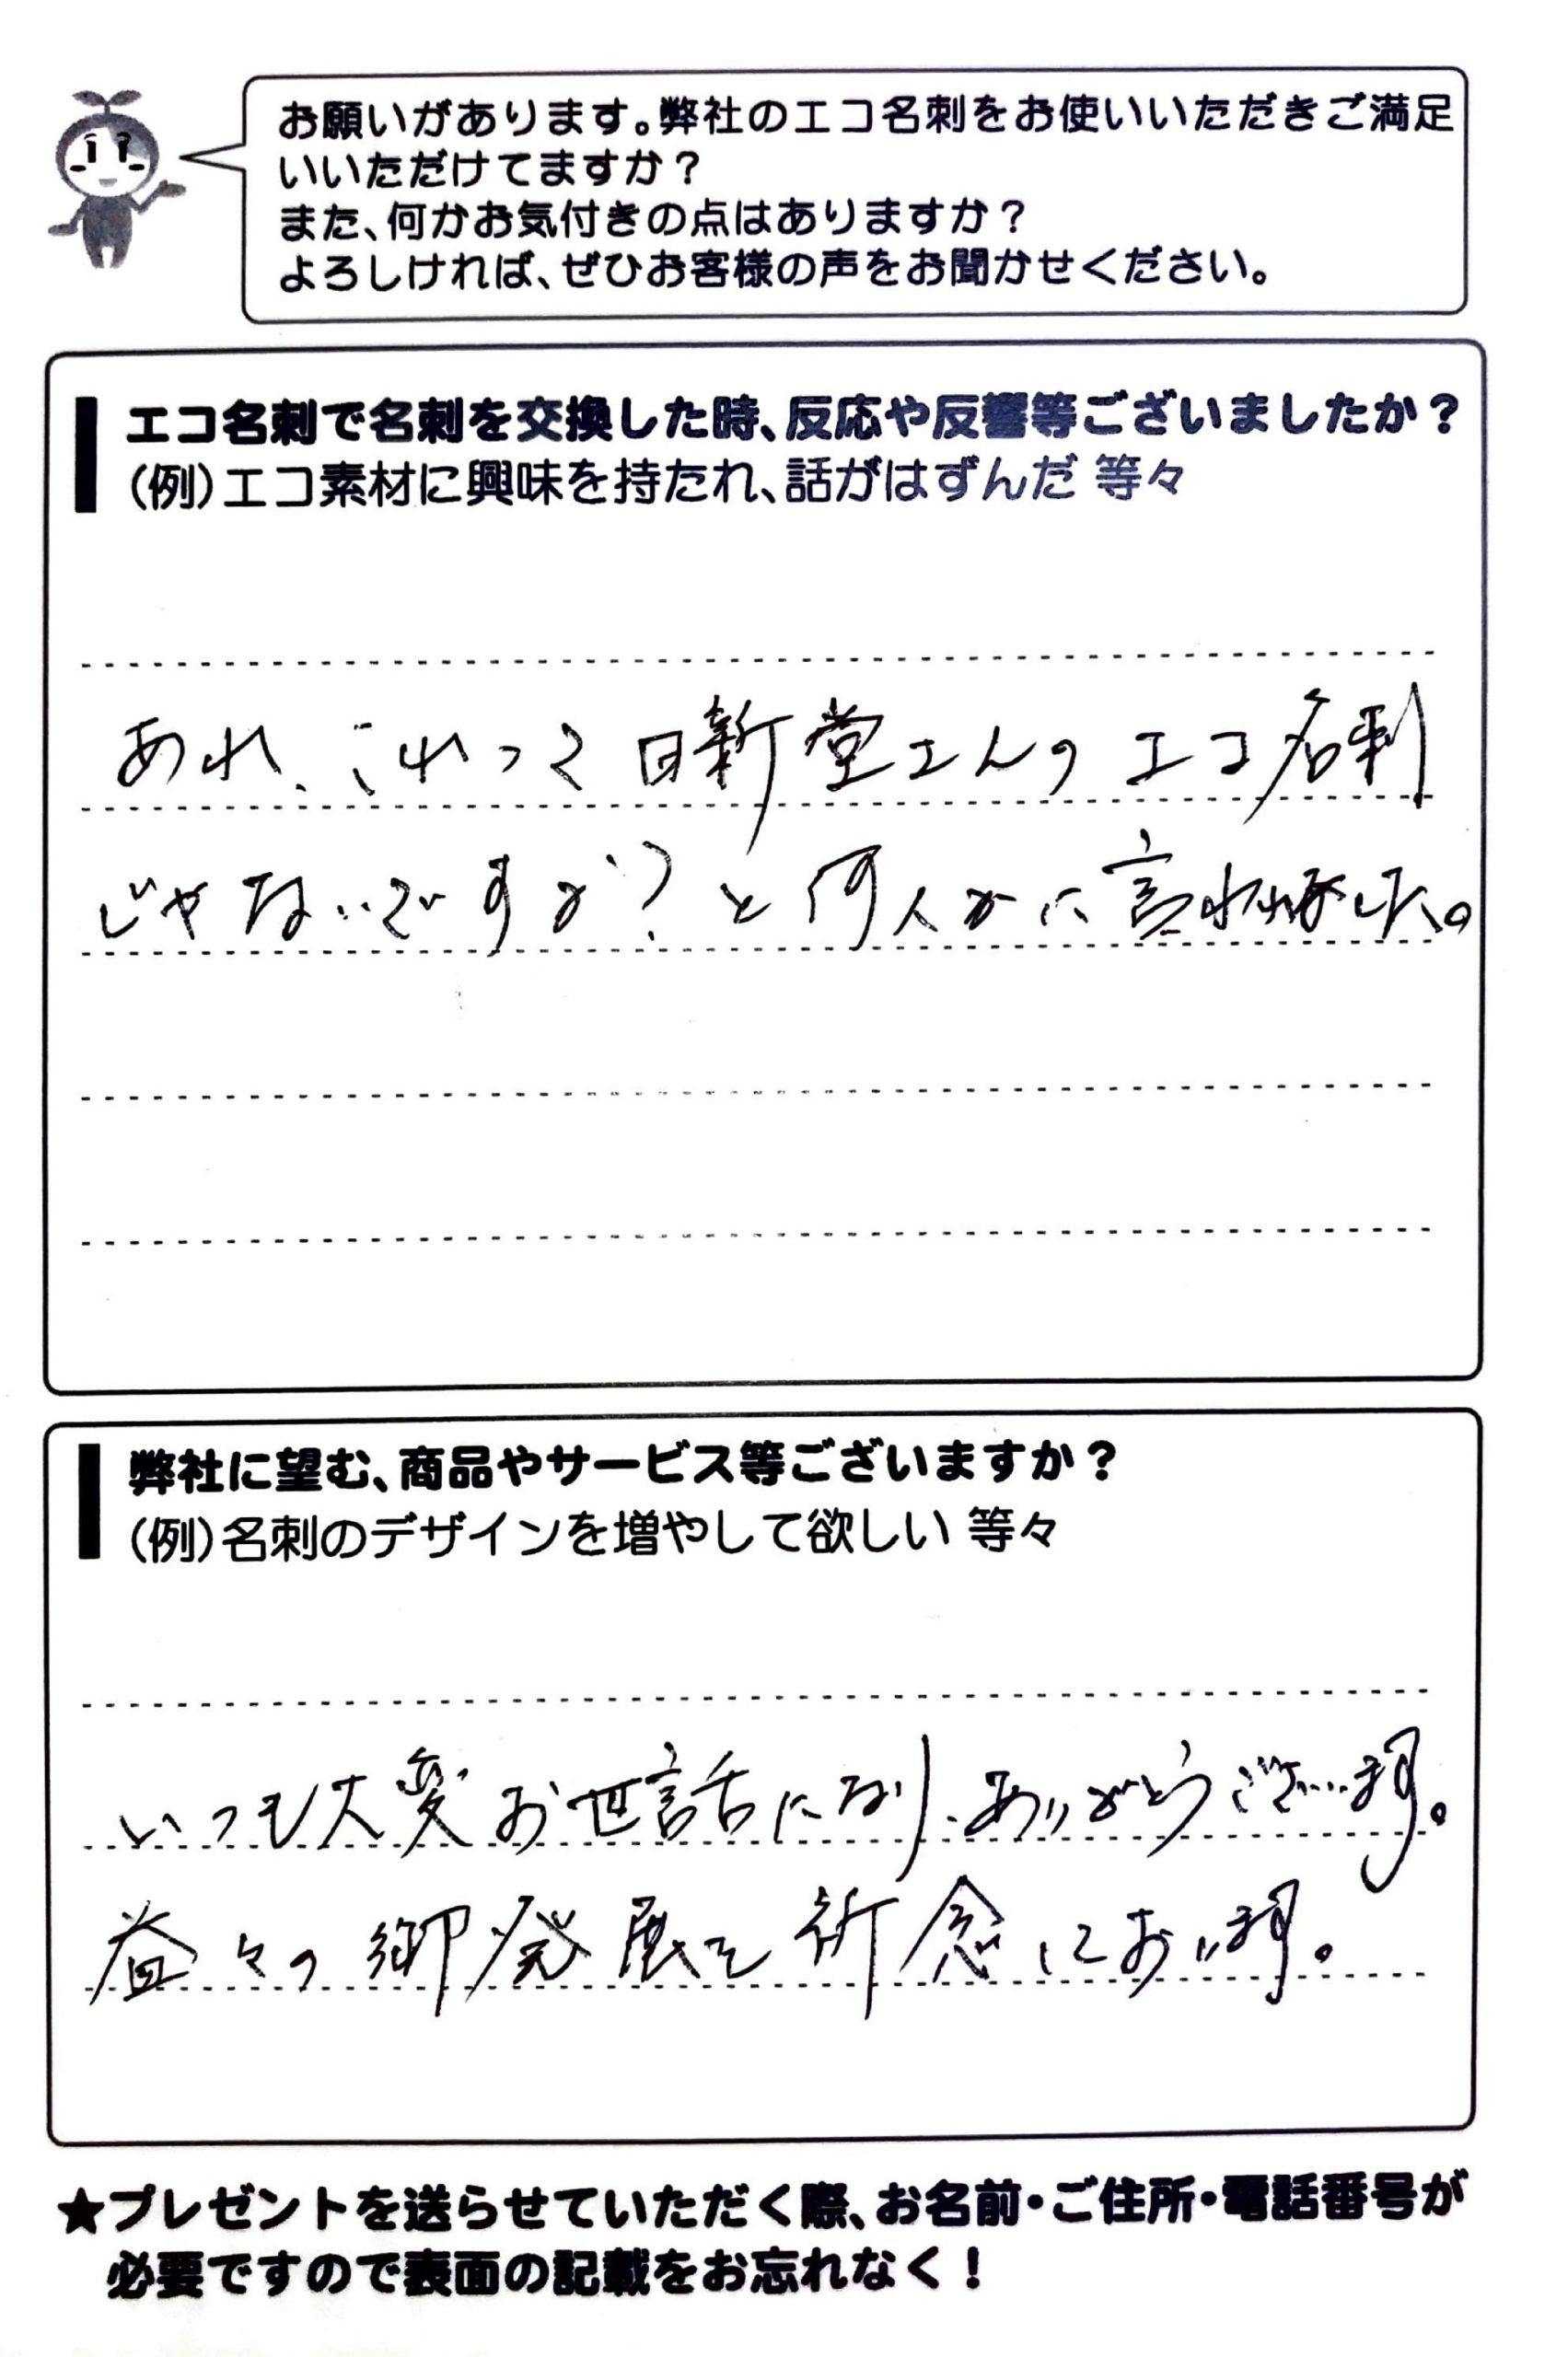 お願いがあります。弊社のエコ名刺をお使いいただきご満足
いいただけてますか？
また、何かお気付きの点はありますか？
よろしければ、ぜひお客様の声をお聞かせください。
エコ名刺で名刺を交換した時、反応や反響等ございましたか？
（例）エコ素材に興味を持たれ、話がはずんだ 等々
あれ、これって日新堂さんのエコ名刺
じゃないですか？と何人かに言われました。
弊社に望む、商品やサービス等ございますか？
（例）名刺のデザインを増やして欲しい 等々
いつも大変お世話になり、ありがとうございます。
益々の御発展を祈念しております。
★プレゼントを送らせていただく際、お名前・ご住所・電話番号が
必要ですので表面の記載をお忘れなく！